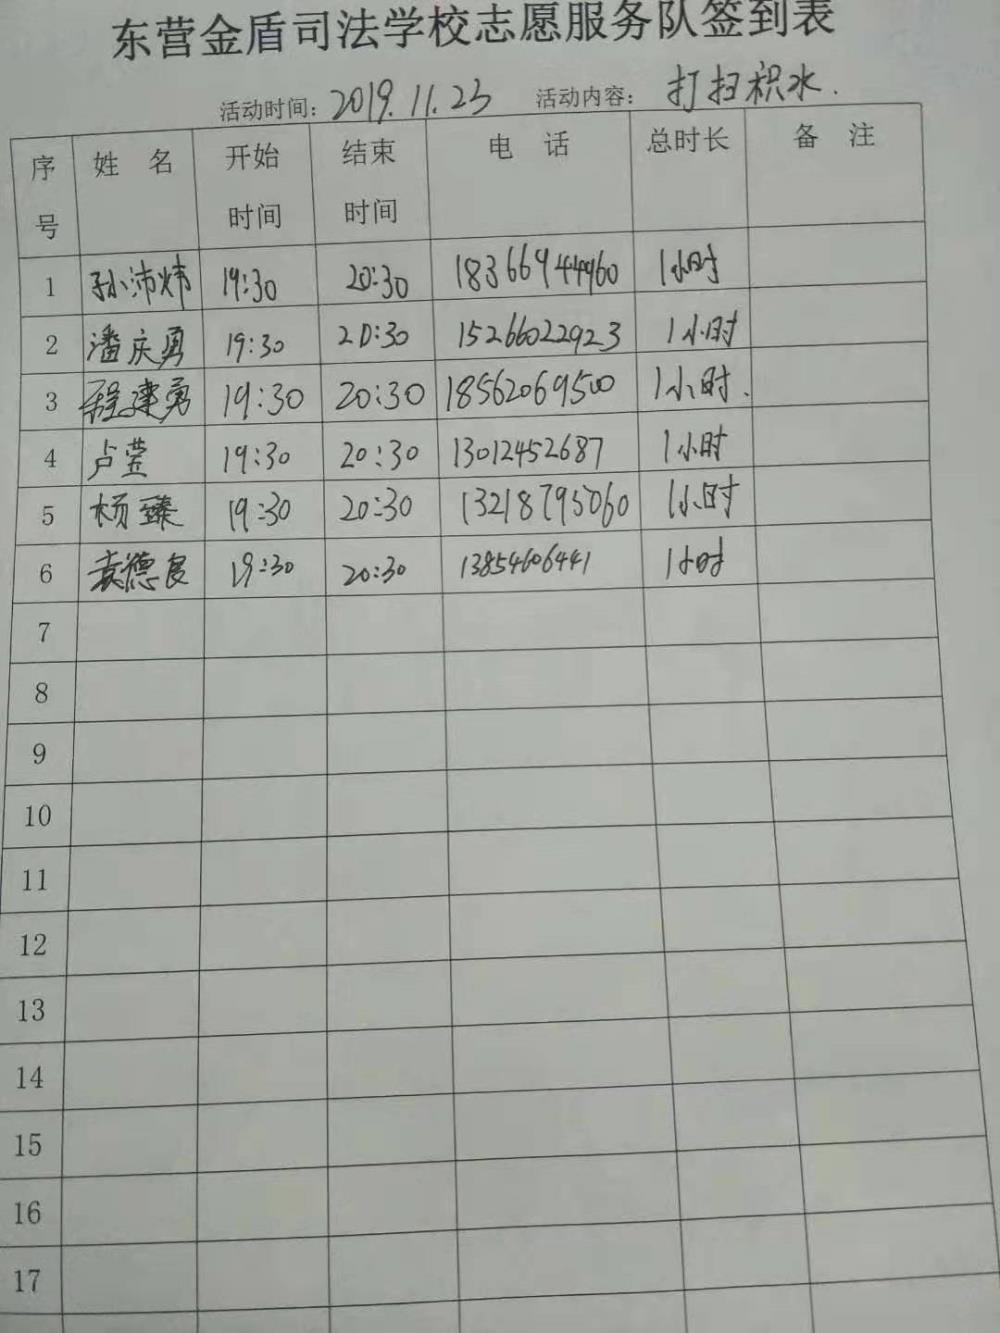 东营金盾司法学校志愿服务队签到表
活动时间：2019.11.23 活动内容：打扫积水.
序号 姓名 开始时间 结束时间 电话 总时长 备注
1 孙沛炜 19:30 20:30 18366944960 1小时
2 潘庆勇 19:30 20:30 15266022923 1小时
3 程建勇 19:30 20:30 18562069500 1小时.
4 卢莹 19:30 20:30 13012452687 1小时
5 杨臻 19:30 20:30 13218795060 1小时
6 袁德良 19:30 20:30 13854606441 1小时
7
8
9
10
11
12
13
14
15
16
17